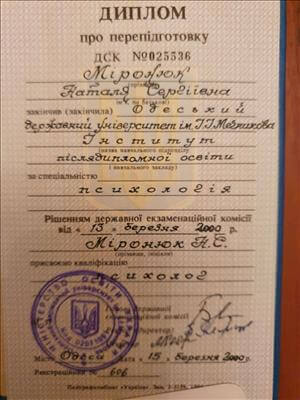 ДИПЛОМ
про перепідготовку
ДСК №025536
Міронюк
Наталя Сергіївна
закінчив (закінчила) Одеський
державний університет ім. І.І.Мечникова
Інститут
(назва навчального підрозділу
післядипломної освіти
навчального закладу)
за спеціальністю
психологія
Рішенням державної екзаменаційної комісії
від « 13 » березня 2000 р.
Міронюк Н.С.
(прізвище, ініціали)
присвоєно кваліфікацію
психолог
Голова державної
екзаменаційної комісії
Директор
Місто Одеса « 15 » березня 2000 р.
Реєстраційний № 606
МІНІСТЕРСТВО ОСВІТИ